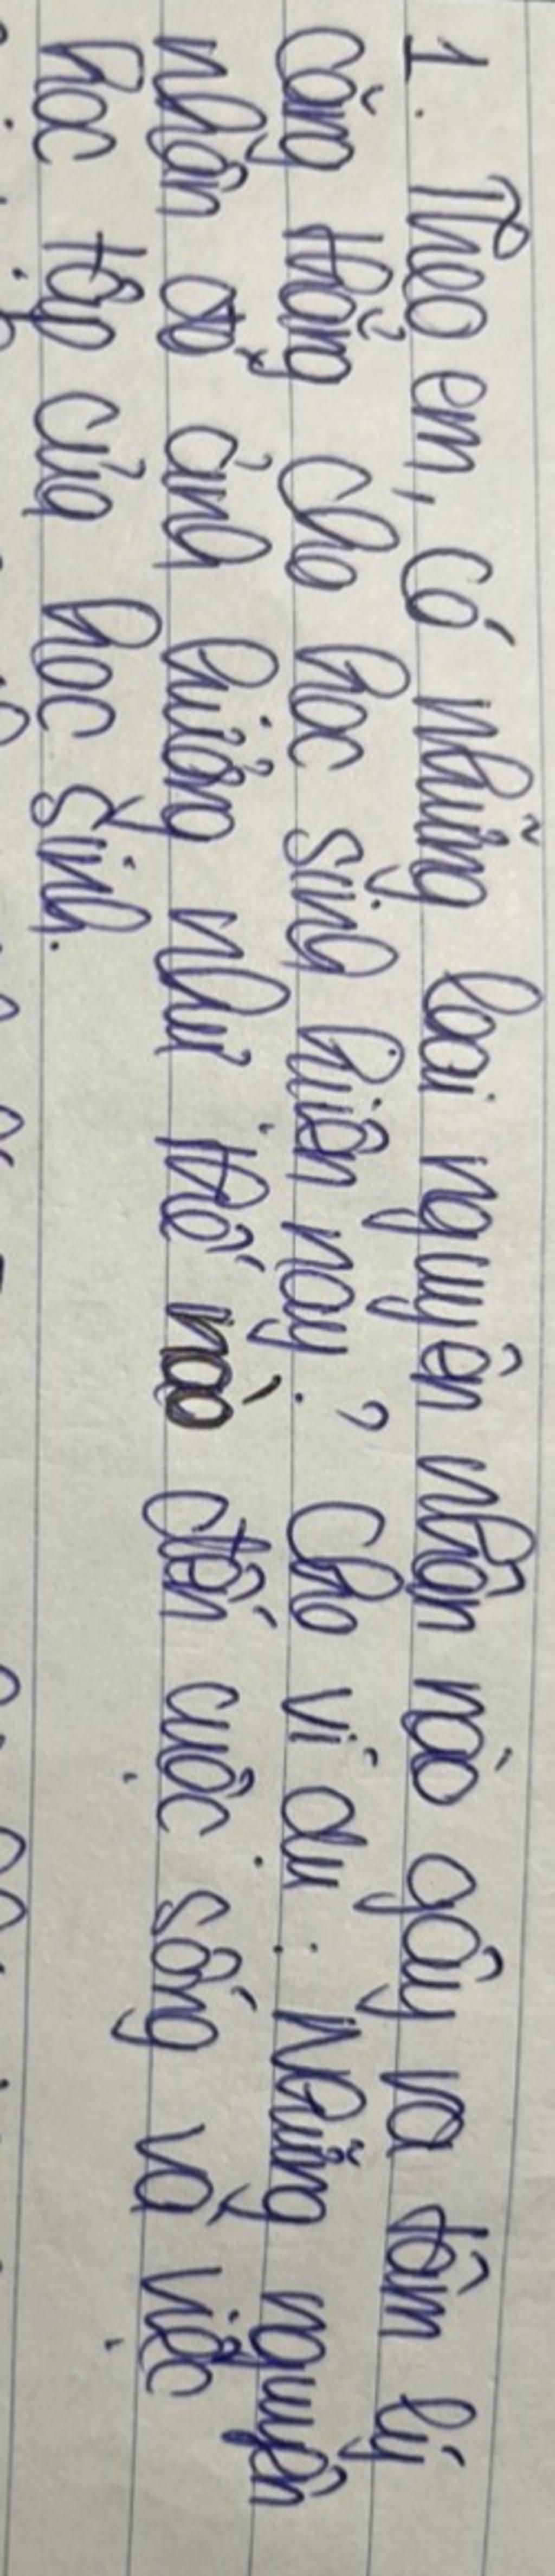 1. Theo em, có những loại nguyên nhân nào gây ra tâm lý
căng thẳng cho học sinh hiện nay? Cho ví dụ. Những nguyên
nhân đó ảnh hưởng như thế nào đến cuộc sống và việc
học tập của học sinh.